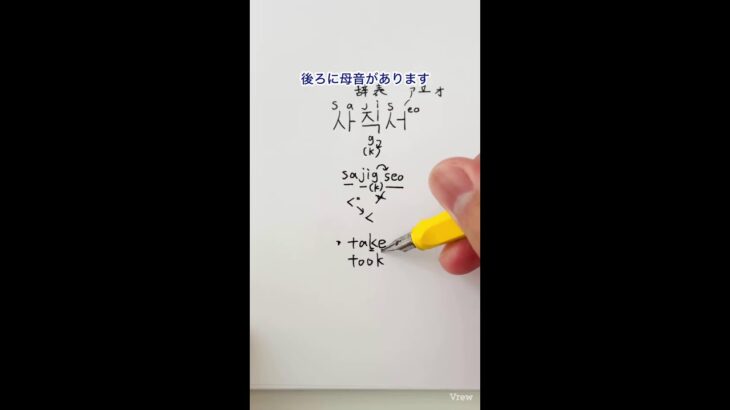 後ろに母音があります
辞表 アエオ
s a j i s eo
사직서
g
(k)
sajig seo
(k)
く
く
take
took
Vrew